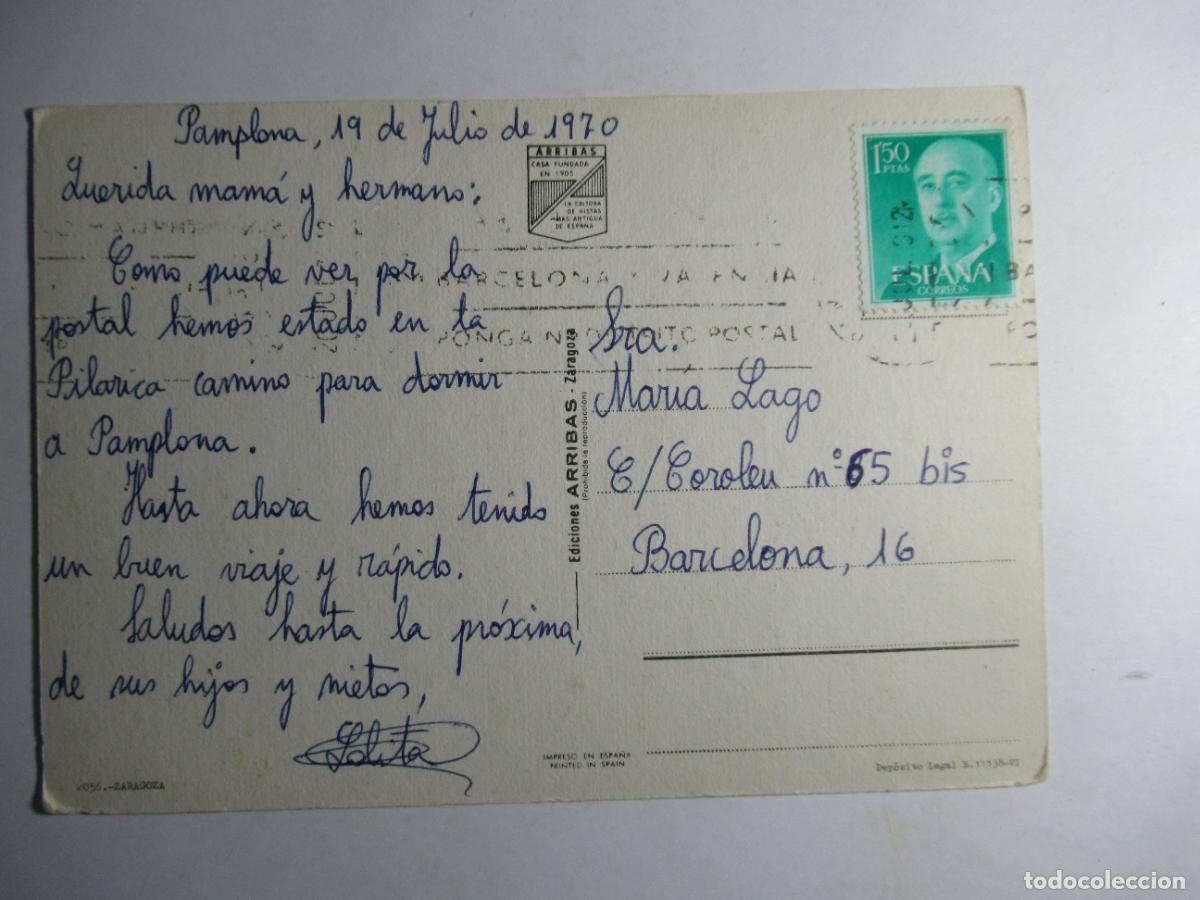 Pamplona, 19 de Julio de 1970
Querida mamá y hermano:
Como puede ver por la
postal hemos estado en la
Pilarica camino para dormir
a Pamplona.
Hasta ahora hemos tenido
un buen viaje y rápido.
Saludos hasta la próxima,
de sus hijos y nietos,
Lolita
ARRIBAS
CASA FUNDADA
EN 1905
LA EDITORA
DE VISTAS
MAS ANTIGUA
DE ESPAÑA
1'50
PTAS
ESPAÑA
CORREOS
BARCELONA Y VALENCIA
PONGA Nº DISTRITO POSTAL
Ediciones ARRIBAS - Zaragoza
(Prohibida la reproducción)
Sra.
María Lago
C/Coroleu nº 65 bis
Barcelona, 16
2056.-ZARAGOZA
IMPRESO EN ESPAÑA
PRINTED IN SPAIN
Depósito Legal B.11138-VI
todocoleccion